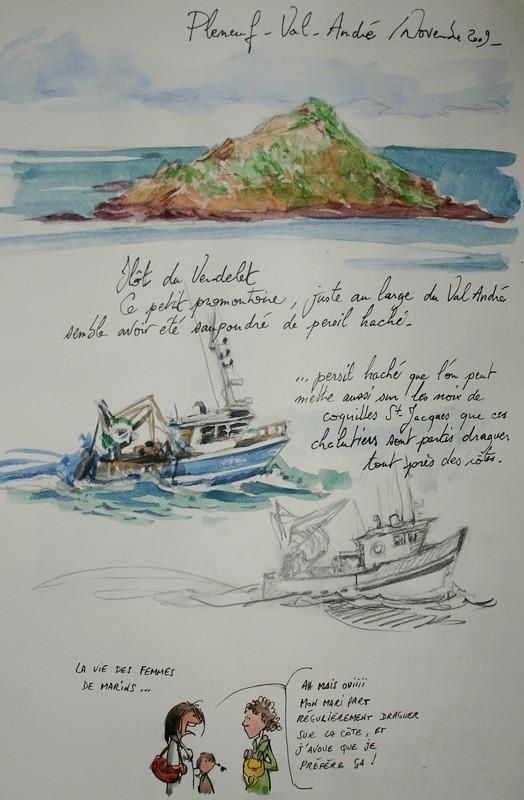 Pleneuf - Val - André / Novembre 2009 -
Ilôt du Verdelet
Ce petit promontoire, juste au large du Val André
semble avoir été saupoudré de persil haché -
... persil haché que l'on peut
mettre aussi sur les noix de
coquilles St-Jacques que ces
chalutiers sont partis draguer
tout près des côtes.
LA VIE DES FEMMES
DE MARINS ...
AH MAIS OUIIII
MON MARI PART
RÉGULIÈREMENT DRAGUER
SUR LA CÔTE, ET
J'AVOUE QUE JE
PRÉFÈRE ÇA !